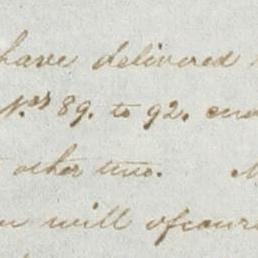 have delivered
Nos 89. to 92.
other two.
will ofcour